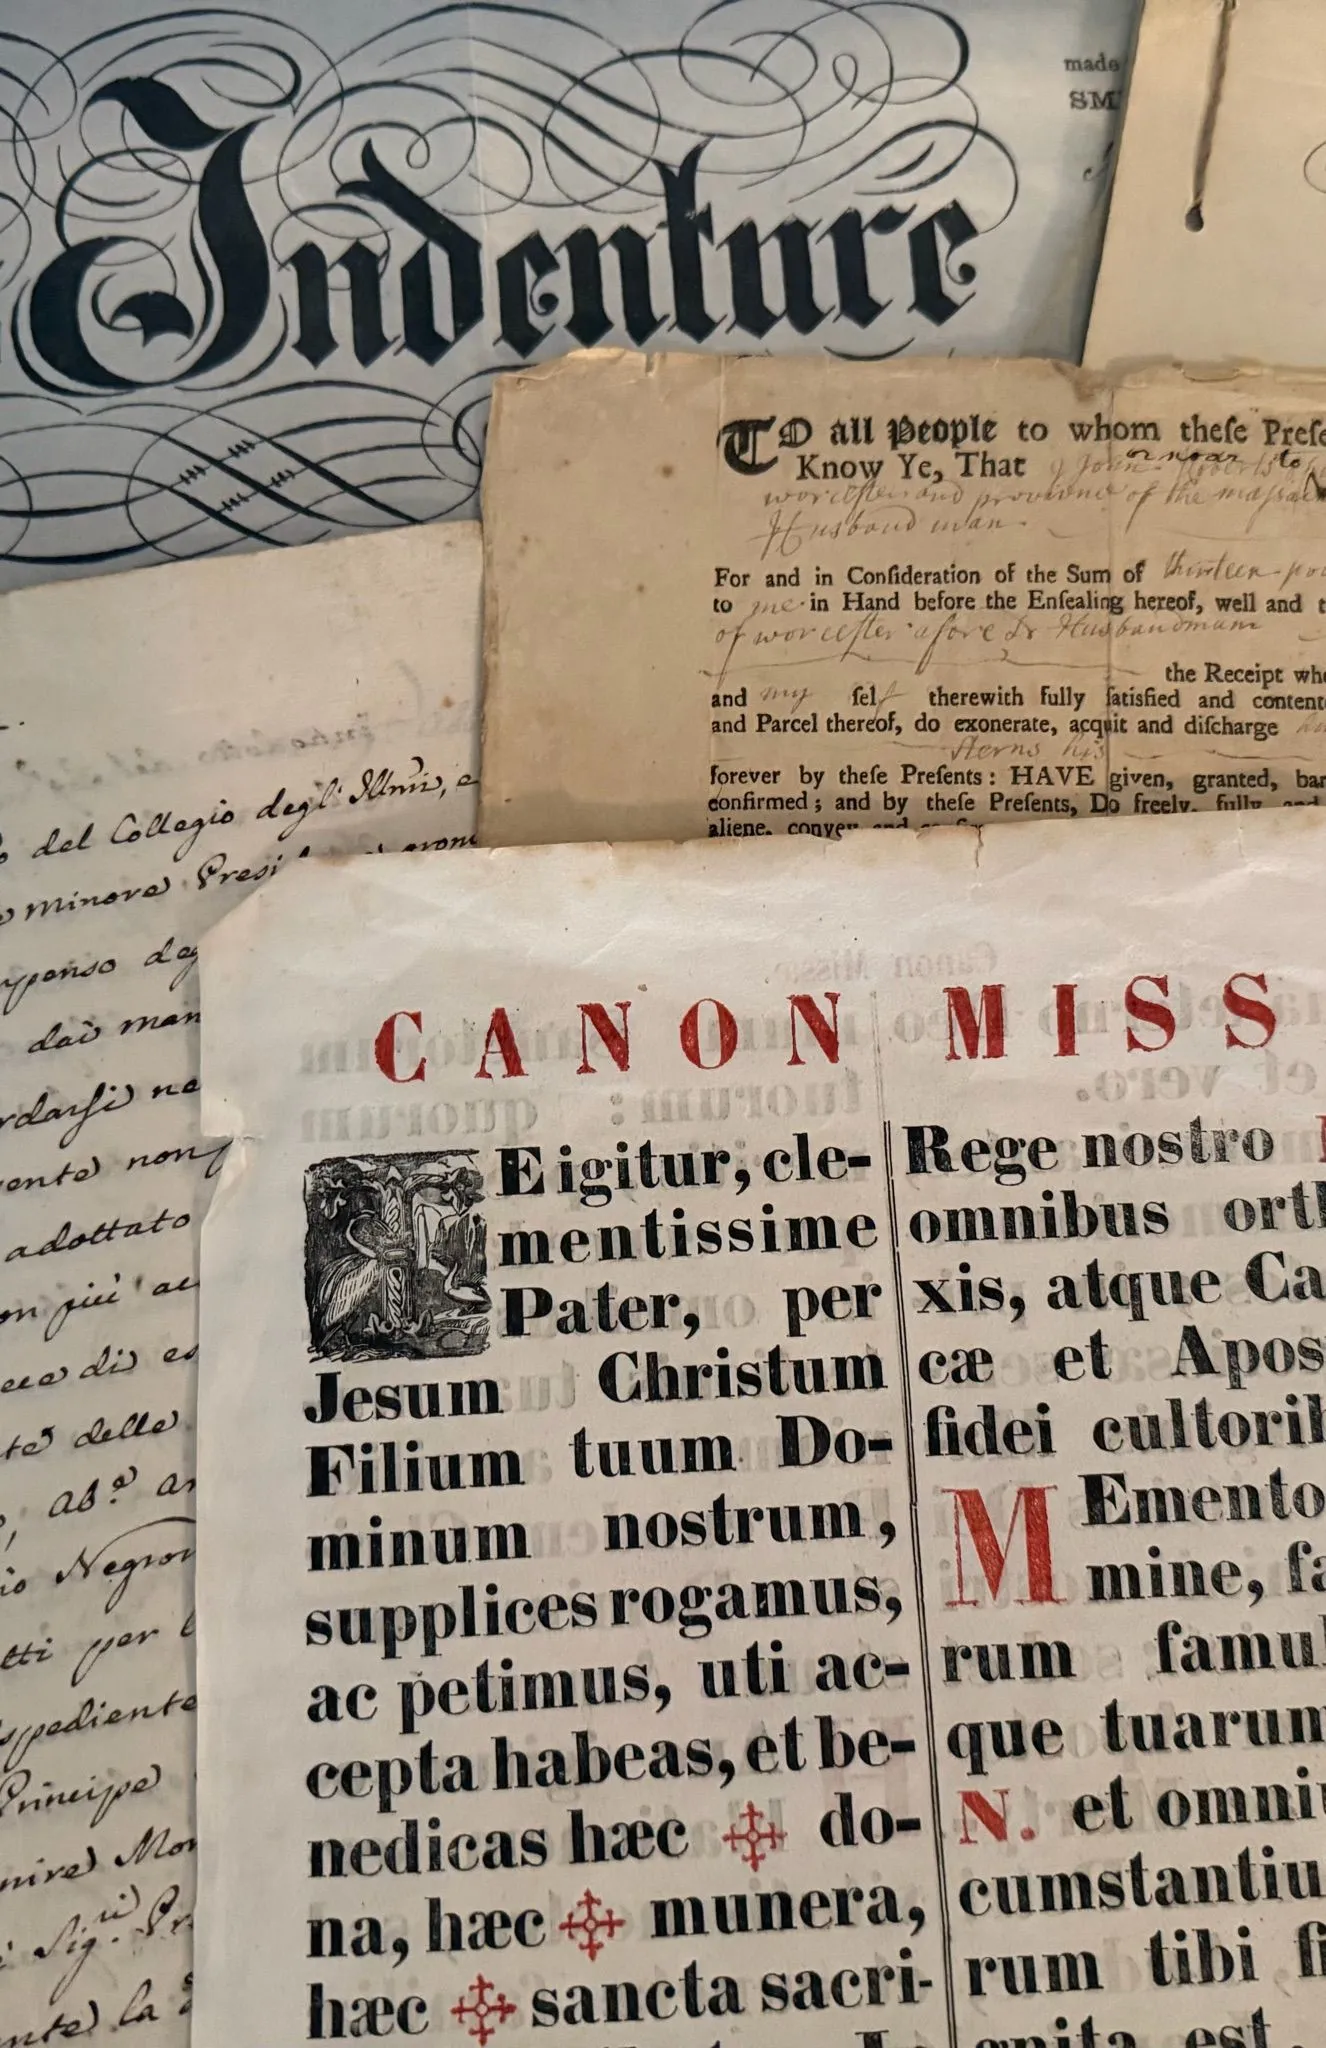 Indenture
made
SM
TO all People to whom theſe Preſe
Know Ye, That I John Roberts
or near to
worcester and province of the massa
Husband man.
For and in Conſideration of the Sum of thirteen pou
to me in Hand before the Enſealing hereof, well and t
of worcester afore Husbandman
the Receipt whe
and my ſelf therewith fully ſatisfied and content
and Parcel thereof, do exonerate, acquit and diſcharge
Sterns his
forever by theſe Preſents: HAVE given, granted, bar
confirmed; and by theſe Preſents, Do freely, fully and
aliene, convey and confir
del Collegio degl' Illmi, e
minore Presi
penso deg
dai man
rdarsi ne
ente non
adottato
on più ac
ece di es
te delle
Ab.e
io Negron
tti per l
spediente
Principe
mire Mon
Sig.ri Pr
nte la
CANON MISS
TE igitur, cle-
mentissime
Pater, per
Jesum Christum
Filium tuum Do-
minum nostrum,
supplices rogamus,
ac petimus, uti ac-
cepta habeas, et be-
nedicas hæc ✠ do-
na, hæc ✠ munera,
hæc ✠ sancta sacri-
Rege nostro
omnibus orth
xis, atque Ca
cæ et Apos
fidei cultorib
MEmento
mine, fa
rum famul
que tuarum
N. et omniu
cumstantiu
rum tibi fi
gnita est,